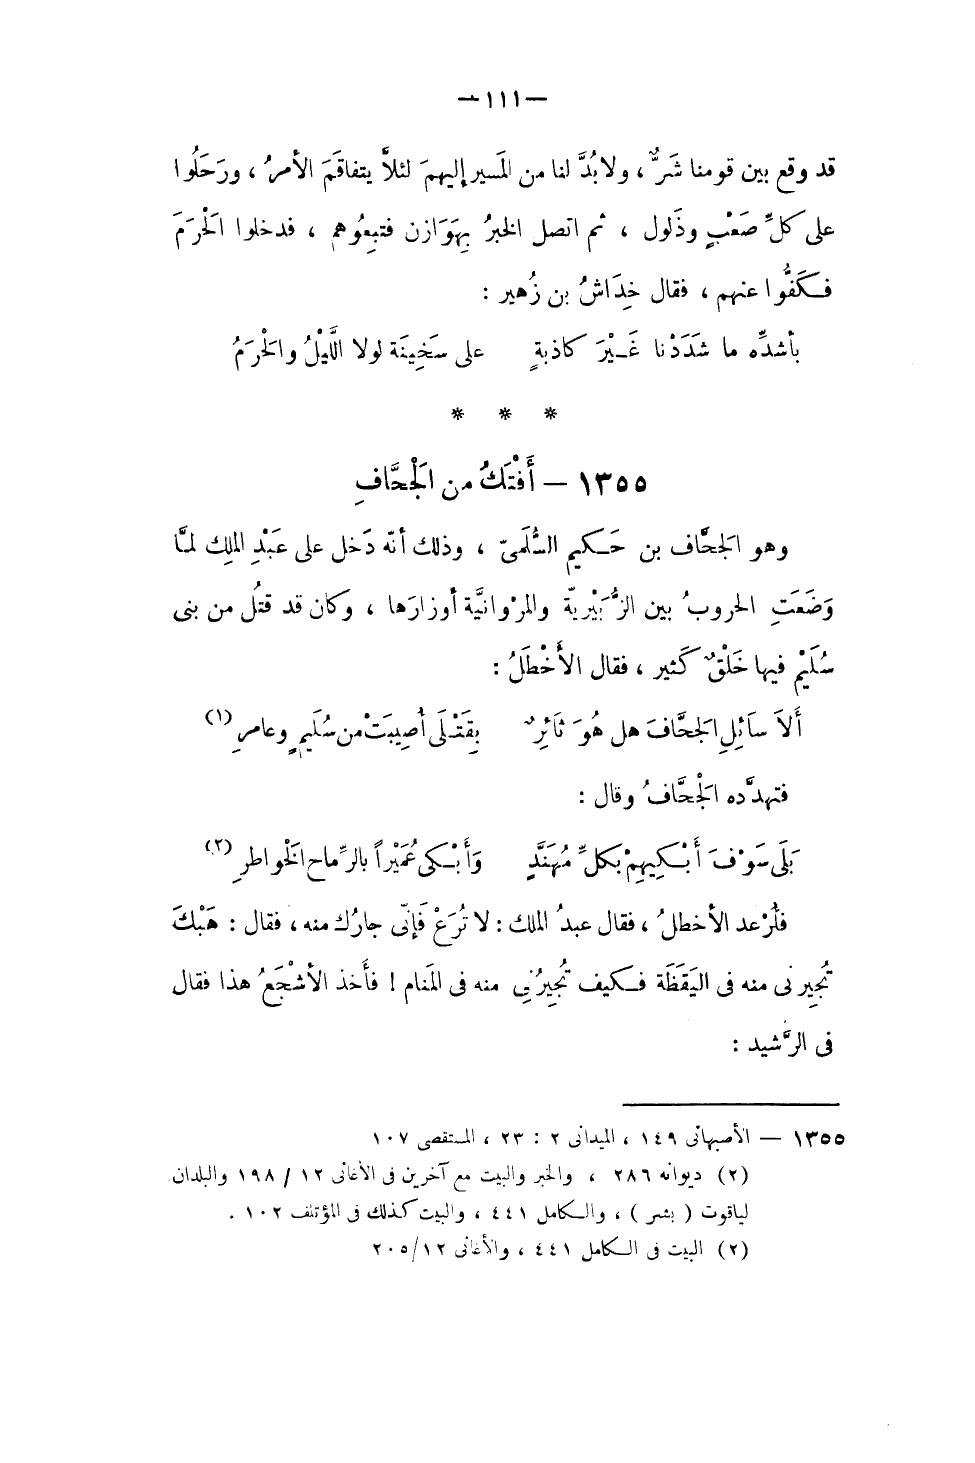 — ١١١ —
قد وقع بين قومنا شَرٌّ ، ولابُدَّ لنا من المَسير إليهمَ لئلاَّ يتفاقَمَ الأمرُ ، ورَحَلُوا
على كلِّ صَعْبٍ وذَلول ، ثم اتصل الخبرُ بِهَوَازن فتبِعُوهم ، فدخلوا الْحَرَمَ
فكَفُّوا عنهم ، فقال خِدَاشُ بن زُهير :
يأشدَّه ما شَدَدْنا غَيْرَ كاذبةٍ على سَخِينَة لولا اللَّيْلُ والحَرَمُ
* * *
١٣٥٥ — أَفْتَكُ من الْجَحَّافِ
وهو الجحَّاف بن حَكيم السُّلَمىّ ، وذلك أنّه دَخل على عَبْدِ الملِك لمَّا
وَضَعَتِ الحروبُ بين الزُّبَيْرِيّة والمرْوانيَّة أوزارَها ، وكان قد قتُل من بنى
سُلَيْم فيها خَلْقٌ كَثير ، فقال الأَخْطَلُ :
أَلاَ سَائِلِ الجَحَّافَ هل هُوَ ثَائِرٌ بِقَتْلَى أُصِيبَتْ من سُلَيمٍ وعامرِ (١)
فتهدَّده الْجَحَّافُ وقال :
بَلَى سَوْفَ أَبْكِيهِمْ بكلِّ مُهَنَّدٍ وَأَبْكى عُمَيْراً بالرِّماح الخَواطرِ (٢)
فأُرْعد الأخطلُ ، فقال عبدُ الملك : لا تُرَعْ فَإنّى جارُك منه ، فقال : هَبْكَ
تُجِيرنى منه فى اليَقَظَة فكيف تُجِيرُنِى منه فى المَنام ! فأَخذ الأشْجَعُ هذا فقال
فى الرَّشيد :
١٣٥٥ — الأصبهانى ١٤٩ ، الميدانى ٢ : ٢٣ ، المستقصى ١٠٧
(٢) ديوانه ٢٨٦ ، والخبر والبيت مع آخرين فى الأغانى ١٢ / ١٩٨ والبلدان
لياقوت ( بشر ) ، والكامل ٤٤١ ، والبيت كذلك فى المؤتلف ١٠٢ .
(٢) البيت فى الكامل ٤٤١ ، والأغانى ٢٠٥/١٢